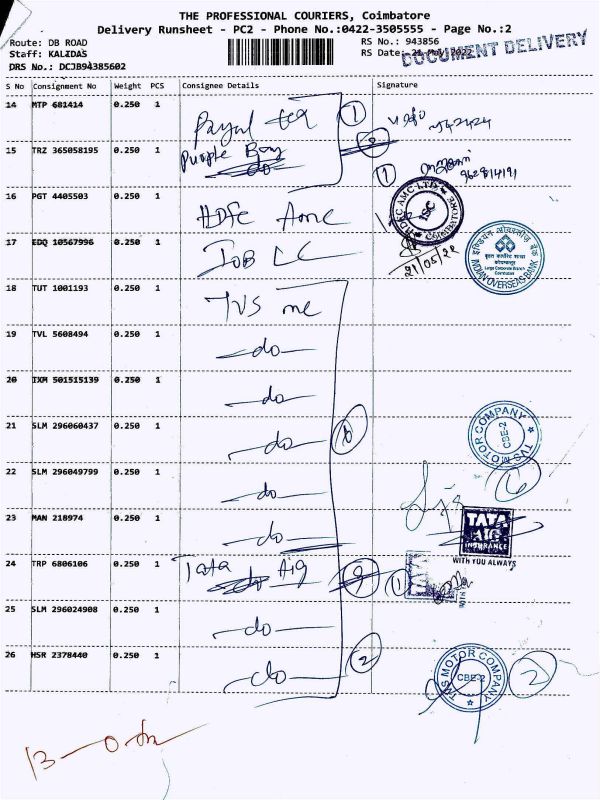 THE PROFESSIONAL COURIERS, Coimbatore
Delivery Runsheet - PC2 - Phone No.:0422-3505555 - Page No.:2
Route: DB ROAD
Staff: KALIDAS
DRS No.: DCJB94385602
RS No.: 943856
RS Date: 21 May 2022
DOCUMENT DELIVERY
S No Consignment No Weight PCS Consignee Details Signature
14 MTP 681414 0.250 1 1
15 TRZ 365058195 0.250 1 Purple Boy
1
16 PGT 4405503 0.250 1 Hdfc Amc
HDFC AMC LTD. ISC COIMBATORE
21/05/22
17 EDQ 10567996 0.250 1 IOB LC
इण्डियन ओवरसीज़ बैंक
Large Corporate Branch
Coimbatore
INDIAN OVERSEAS BANK
18 TUT 1001193 0.250 1 TVS mc
19 TVL 5608494 0.250 1 do
20 IXM 501515139 0.250 1 do
21 SLM 296060437 0.250 1 do 6
TVS MOTOR COMPANY CBE-2
6
22 SLM 296049799 0.250 1 do
23 MAN 218974 0.250 1 do
TATA
AIG
INSURANCE
WITH YOU ALWAYS
24 TRP 6806106 0.250 1 Tata Aig 1
25 SLM 296024908 0.250 1 do
26 HSR 2378440 0.250 1 do 2
TVS MOTOR COMPANY CBE-2
2
13